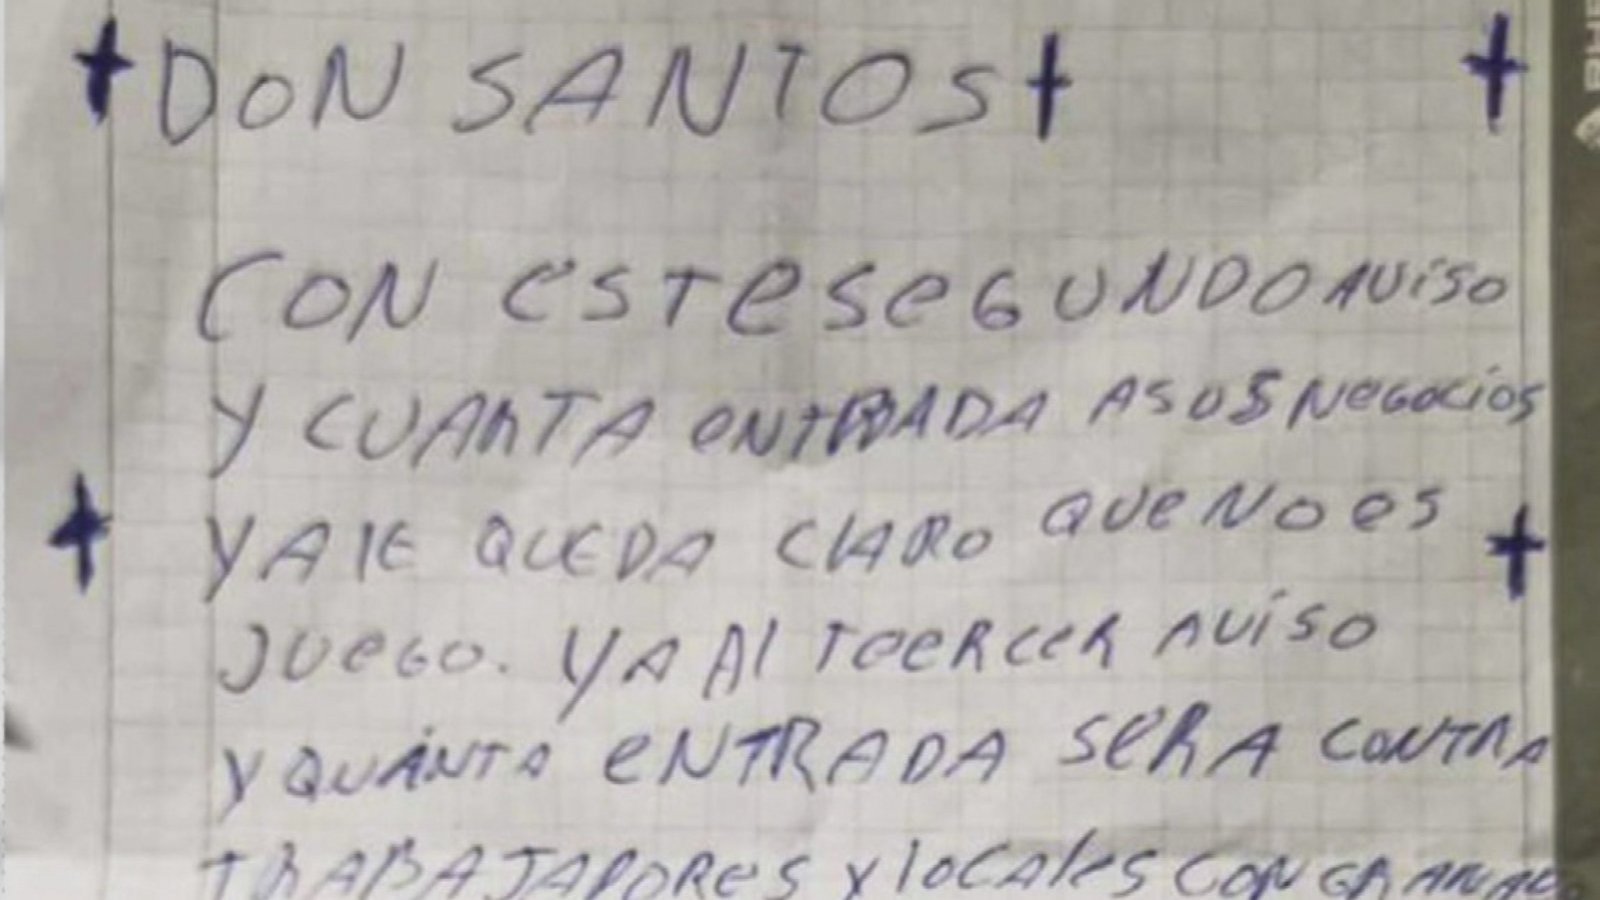 DON SANTOS
CON ESTE SEGUNDO AVISO
Y CUANTA ENTRADA A SUS NEGOCIOS
YA LE QUEDA CLARO QUE NO ES
JUEGO. YA Al TEERCER AVISO
Y QUÁNTA ENTRADA SERA CONTRA
TRABAJADORES Y lOCALES CON